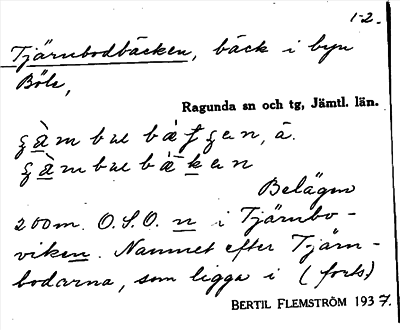 1-2.
Tjärnbodbäcken, bäck i byn
Böle,
Ragunda sn och tg, Jämtl. län.
Belägen
200 m. O.S.O. n i Tjärnbo-
viken. Namnet efter Tjärn-
bodarna, som ligga i (forts.)
BERTIL FLEMSTRÖM 1937.